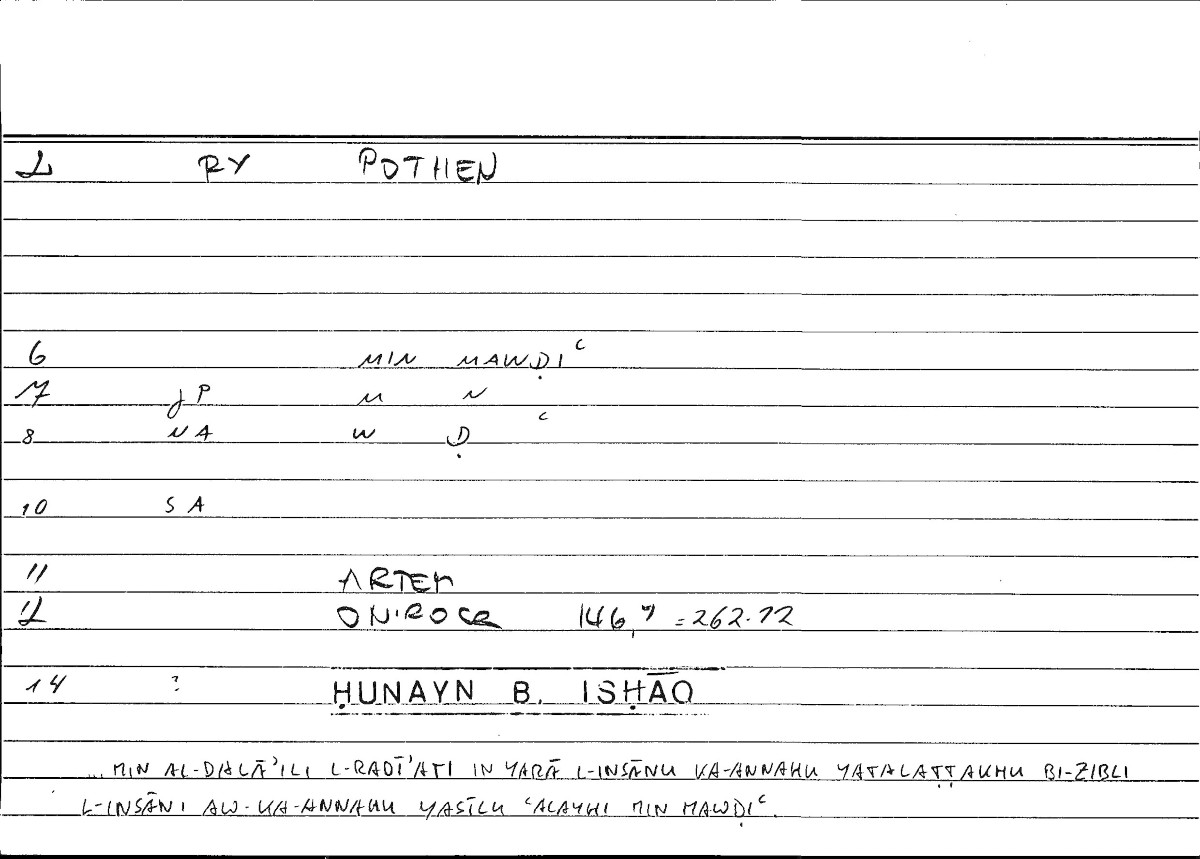 2 RY POTHEN
6 MIN MAWḌIʿ
7 JP M N
8 NA W Ḍ ʿ
10 SA
11 ARTEM
12 ONIROCR 146,7 = 262.12
14 ? ḤUNAYN B. ISḤĀQ
... MIN AL-DALĀʾILI L-RADĪʾATI IN YARĀ L-INSĀNU KA-ANNAHU YATALAṬṬAKHU BI-ZIBLI
L-INSĀNI AW-KA-ANNAHU YASĪLU ʿALAYHI MIN MAWḌIʿ.